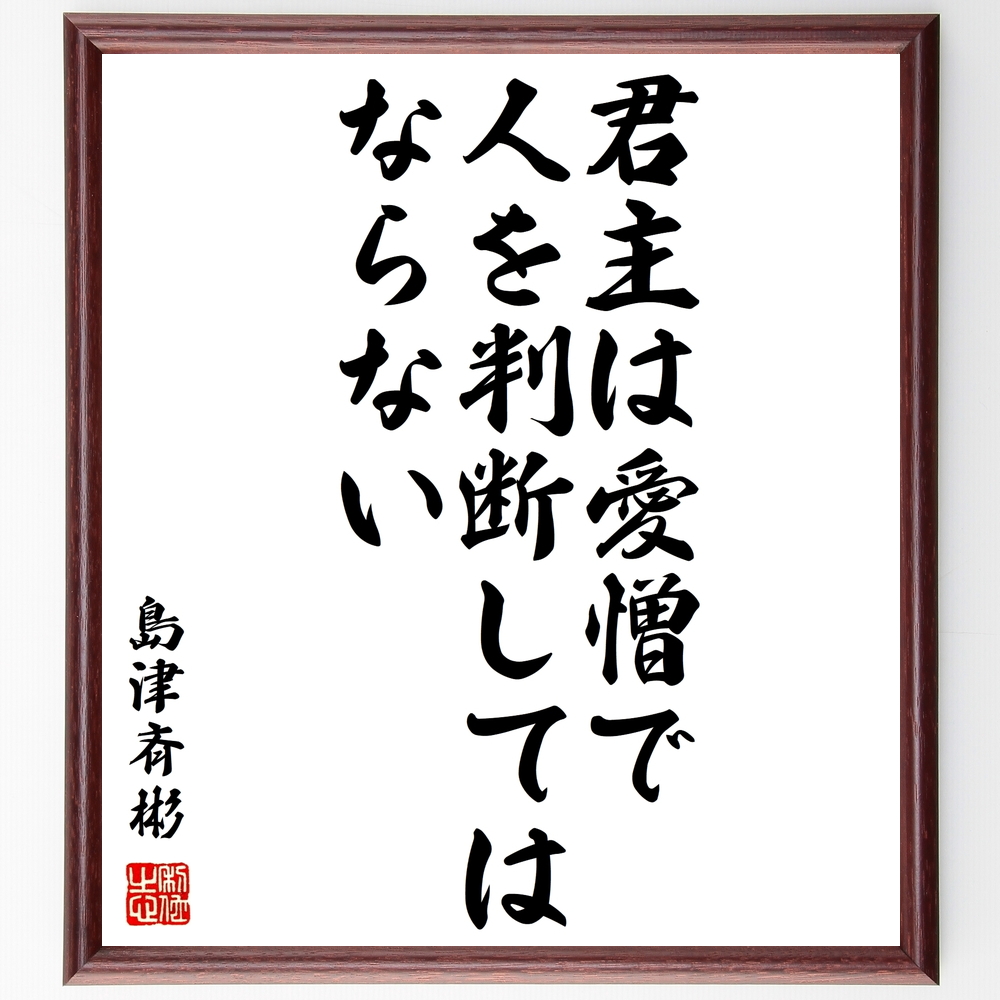 君主は愛憎で
人を判断しては
ならない
島津斉彬